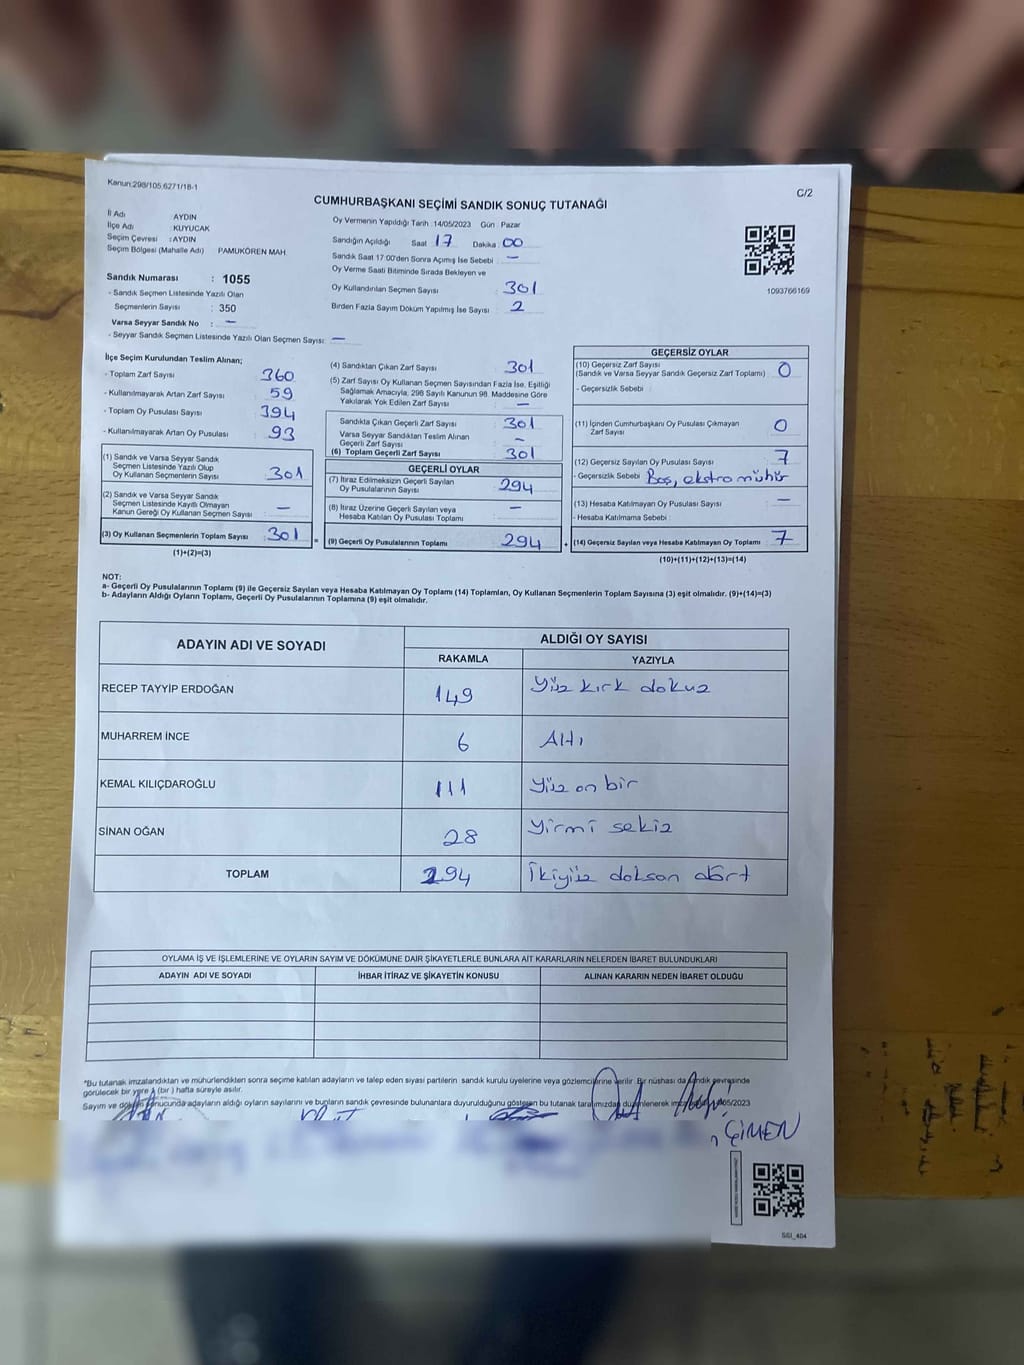 Kanun:298/105,6271/18-1
C/2
CUMHURBAŞKANI SEÇİMİ SANDIK SONUÇ TUTANAĞI
İl Adı : AYDIN
İlçe Adı : KUYUCAK
Seçim Çevresi : AYDIN
Seçim Bölgesi (Mahalle Adı) PAMUKÖREN MAH
Sandık Numarası : 1055
- Sandık Seçmen Listesinde Yazılı Olan
Seçmenlerin Sayısı : 350
Varsa Seyyar Sandık No : —
- Seyyar Sandık Seçmen Listesinde Yazılı Olan Seçmen Sayısı: —
Oy Vermenin Yapıldığı Tarih :14/05/2023 Gün : Pazar
Sandığın Açıldığı Saat : 17 Dakika : 00
Sandık Saat 17:00'den Sonra Açımış İse Sebebi : —
Oy Verme Saati Bitiminde Sırada Bekleyen ve
Oy Kullandırılan Seçmen Sayısı : 301
Birden Fazla Sayım Döküm Yapılmış İse Sayısı : 2
1093766169
İlçe Seçim Kurulundan Teslim Alınan;
- Toplam Zarf Sayısı : 360
- Kullanılmayarak Artan Zarf Sayısı : 59
- Toplam Oy Pusulası Sayısı : 394
- Kullanılmayarak Artan Oy Pusulası : 93
(1) Sandık ve Varsa Seyyar Sandık
Seçmen Listesinde Yazılı Olup
Oy Kullanan Seçmenlerin Sayısı : 301
(2) Sandık ve Varsa Seyyar Sandık
Seçmen Listesinde Kayıtlı Olmayan
Kanun Gereği Oy Kullanan Seçmen Sayısı : —
(3) Oy Kullanan Seçmenlerin Toplam Sayısı : 301
(1)+(2)=(3)
(4) Sandıktan Çıkan Zarf Sayısı : 301
(5) Zarf Sayısı Oy Kullanan Seçmen Sayısından Fazla İse, Eşitliği
Sağlamak Amacıyla, 298 Sayılı Kanunun 98. Maddesine Göre
Yakılarak Yok Edilen Zarf Sayısı : —
Sandıkta Çıkan Geçerli Zarf Sayısı : 301
Varsa Seyyar Sandıktan Teslim Alınan
Geçerli Zarf Sayısı : —
(6) Toplam Geçerli Zarf Sayısı : 301
GEÇERLİ OYLAR
(7) İtiraz Edilmeksizin Geçerli Sayılan
Oy Pusulalarının Sayısı : 294
(8) İtiraz Üzerine Geçerli Sayılan veya
Hesaba Katılan Oy Pusulası Toplamı : —
= (9) Geçerli Oy Pusulalarının Toplamı : 294 +
GEÇERSİZ OYLAR
(10) Geçersiz Zarf Sayısı
(Sandık ve Varsa Seyyar Sandık Geçersiz Zarf Toplamı) : 0
- Geçersizlik Sebebi :
(11) İçinden Cumhurbaşkanı Oy Pusulası Çıkmayan
Zarf Sayısı : 0
(12) Geçersiz Sayılan Oy Pusulası Sayısı : 7
- Geçersizlik Sebebi : Boş, ekstra mühür
(13) Hesaba Katılmayan Oy Pusulası Sayısı : —
- Hesaba Katılmama Sebebi :
(14) Geçersiz Sayılan veya Hesaba Katılmayan Oy Toplamı : 7
(10)+(11)+(12)+(13)=(14)
NOT:
a- Geçerli Oy Pusulalarının Toplamı (9) ile Geçersiz Sayılan veya Hesaba Katılmayan Oy Toplamı (14) Toplamları, Oy Kullanan Seçmenlerin Toplam Sayısına (3) eşit olmalıdır. (9)+(14)=(3)
b- Adayların Aldığı Oyların Toplamı, Geçerli Oy Pusulalarının Toplamına (9) eşit olmalıdır.
ADAYIN ADI VE SOYADI
ALDIĞI OY SAYISI
RAKAMLA YAZIYLA
RECEP TAYYİP ERDOĞAN 149 Yüz kırk dokuz
MUHARREM İNCE 6 Altı
KEMAL KILIÇDAROĞLU 111 Yüz on bir
SİNAN OĞAN 28 Yirmi sekiz
TOPLAM 294 İkiyüz doksan dört
OYLAMA İŞ VE İŞLEMLERİNE VE OYLARIN SAYIM VE DÖKÜMÜNE DAİR ŞİKAYETLERLE BUNLARA AİT KARARLARIN NELERDEN İBARET BULUNDUKLARI
ADAYIN ADI VE SOYADI İHBAR İTİRAZ VE ŞİKAYETİN KONUSU ALINAN KARARIN NEDEN İBARET OLDUĞU
*Bu tutanak imzalandıktan ve mühürlendikten sonra seçime katılan adayların ve talep eden siyasi partilerin sandık kurulu üyelerine veya gözlemcilerine verilir. Bir nüshası da sandık çevresinde
görülecek bir yere 1 (bir ) hafta süreyle asılır.
Sayım ve döküm sonucunda adayların aldığı oyların sayılarını ve bunların sandık çevresinde bulunanlara duyurulduğunu gösteren bu tutanak tarafımızdan düzenlenerek
ÇİMEN
SSI_404